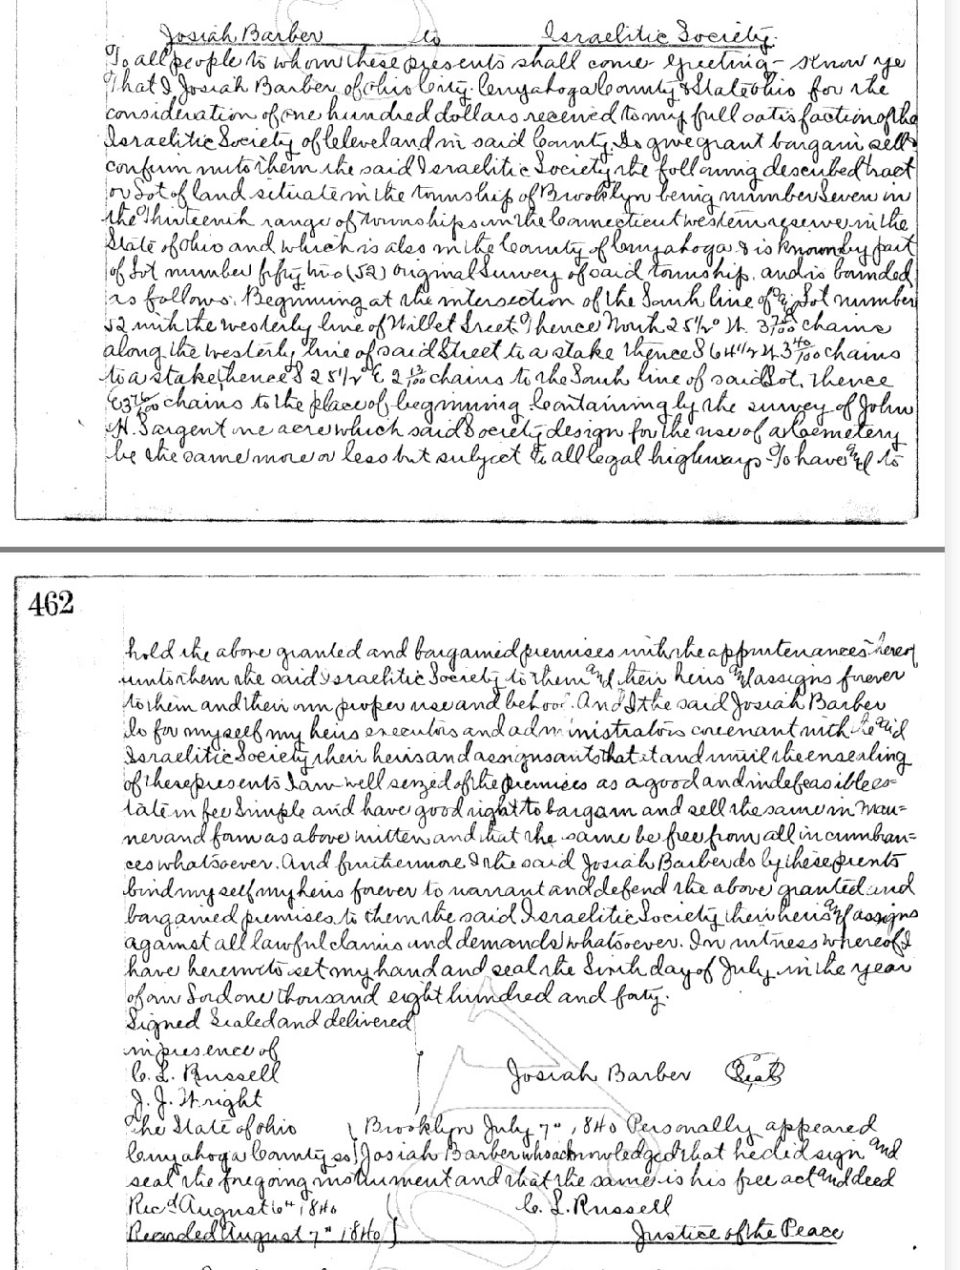 Josiah Barber to Israelitic Society.
To all people to whom these presents shall come Greeting - Know ye
That I Josiah Barber of Ohio City Cuyahoga County & State Ohio for the
consideration of one hundred dollars received to my full satisfaction of the
Israelitic Society of Cleveland in said County, Do give grant bargain sell &
confirm unto them the said Israelitic Society the following described tract
or Lot of land situate in the township of Brooklyn being number Seven in
the Thirteenth range of townships in the Connecticut western reserve in the
State of Ohio and which is also in the County of Cuyahoga & is known by part
of Lot number fifty two (52) original Survey of said township, and is bounded
as follows. Beginning at the intersection of the South line of Lot number
52 with the westerly line of Willet Street Thence North 25 1/2° W. chains
along the westerly line of said Street to a stake thence S 64 1/2 W 3 40/100 chains
to a stake thence S 25 1/2° E 2 chains to the South line of said Lot. Thence
E 3 76/100 chains to the place of beginning Containing by the survey of John
H. Sargent one acre which said Society design for the use of a Cemetery
be the same more or less but subject to all legal highways To have and to
462
hold the above granted and bargained premises with the appurtenances thereof
unto them the said Israelitic Society to them and their heirs and assigns forever
to them and their own proper use and behoof. And I the said Josiah Barber
do for myself my heirs executors and administrators covenant with the said
Israelitic Society their heirs and assigns that at and until the ensealing
of these presents I am well seized of the premises as a good and indefeasible es-
tate in fee Simple and have good right to bargain and sell the same in man=
ner and form as above written and that the same be free from all incumbran=
ces whatsoever. And furthermore I the said Josiah Barber do by these presents
bind myself my heirs forever to warrant and defend the above granted and
bargained premises to them the said Israelitic Society their heirs and assigns
against all lawful claims and demands whatsoever. In witness whereof I
have hereunto set my hand and seal the Sixth day of July in the year
of our Lord one thousand eight hundred and forty.
Signed Sealed and delivered
in presence of
C. L. Russell Josiah Barber Seal
J. J. Wright
The State of Ohio Brooklyn July 7" 1840 Personally appeared
Cuyahoga County ss Josiah Barber who acknowledged that he did sign and
seal the foregoing instrument and that the same is his free act and deed
Rec'd August 6" 1840 C. L. Russell
Recorded August 7" 1840 Justice of the Peace